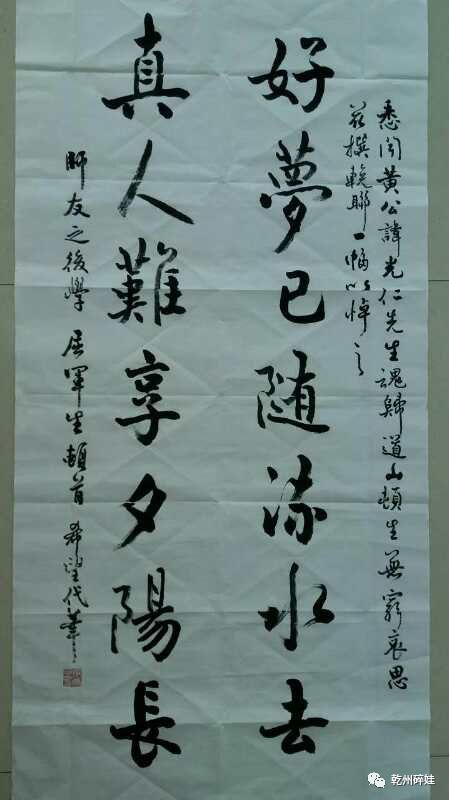 悉闻黄公諱光仁先生魂歸道山頓生無窮哀思
兹撰輓聯一幅以悼之
好夢已随流水去
真人難享夕陽長
師友之後學 屈軍生頓首 希望代筆
乾州碎娃